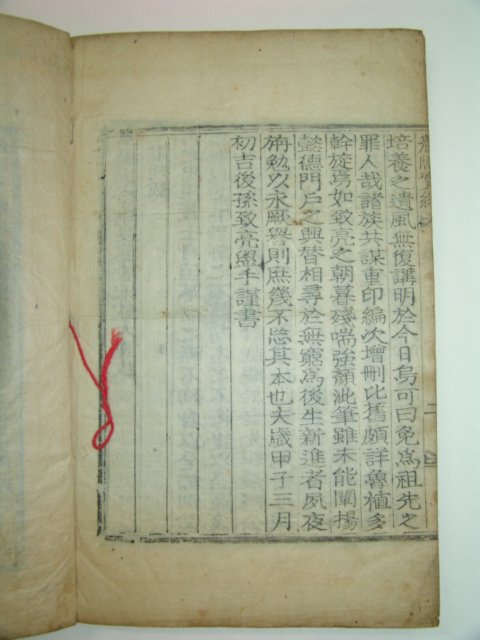 培養之遺風無復講明於今日烏可曰免爲祖先之
罪人哉諸族共謀重印編次增刪比舊頗詳魯植多
斡旋焉如致亮之朝暮殘喘強顔泚筆雖未能闡揚
懿德門戶之興替相尋於無窮爲後生新進者夙夜
旃勉以永厥譽則庶幾不忝其本也夫歲甲子三月
初吉後孫致亮盥手謹書
二